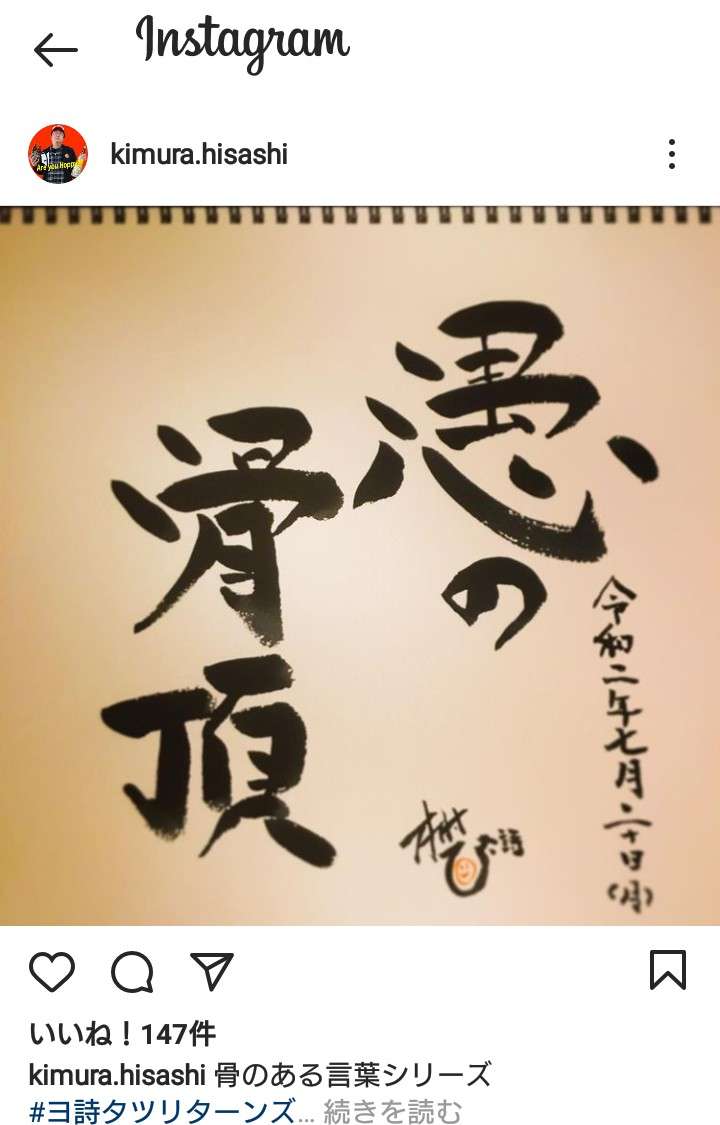 Instagram
kimura.hisashi
愚の
骨頂
令和二年七月二十日(月)
いいね！147件
kimura.hisashi 骨のある言葉シリーズ
#ヨ詩タツリターンズ... 続きを読む